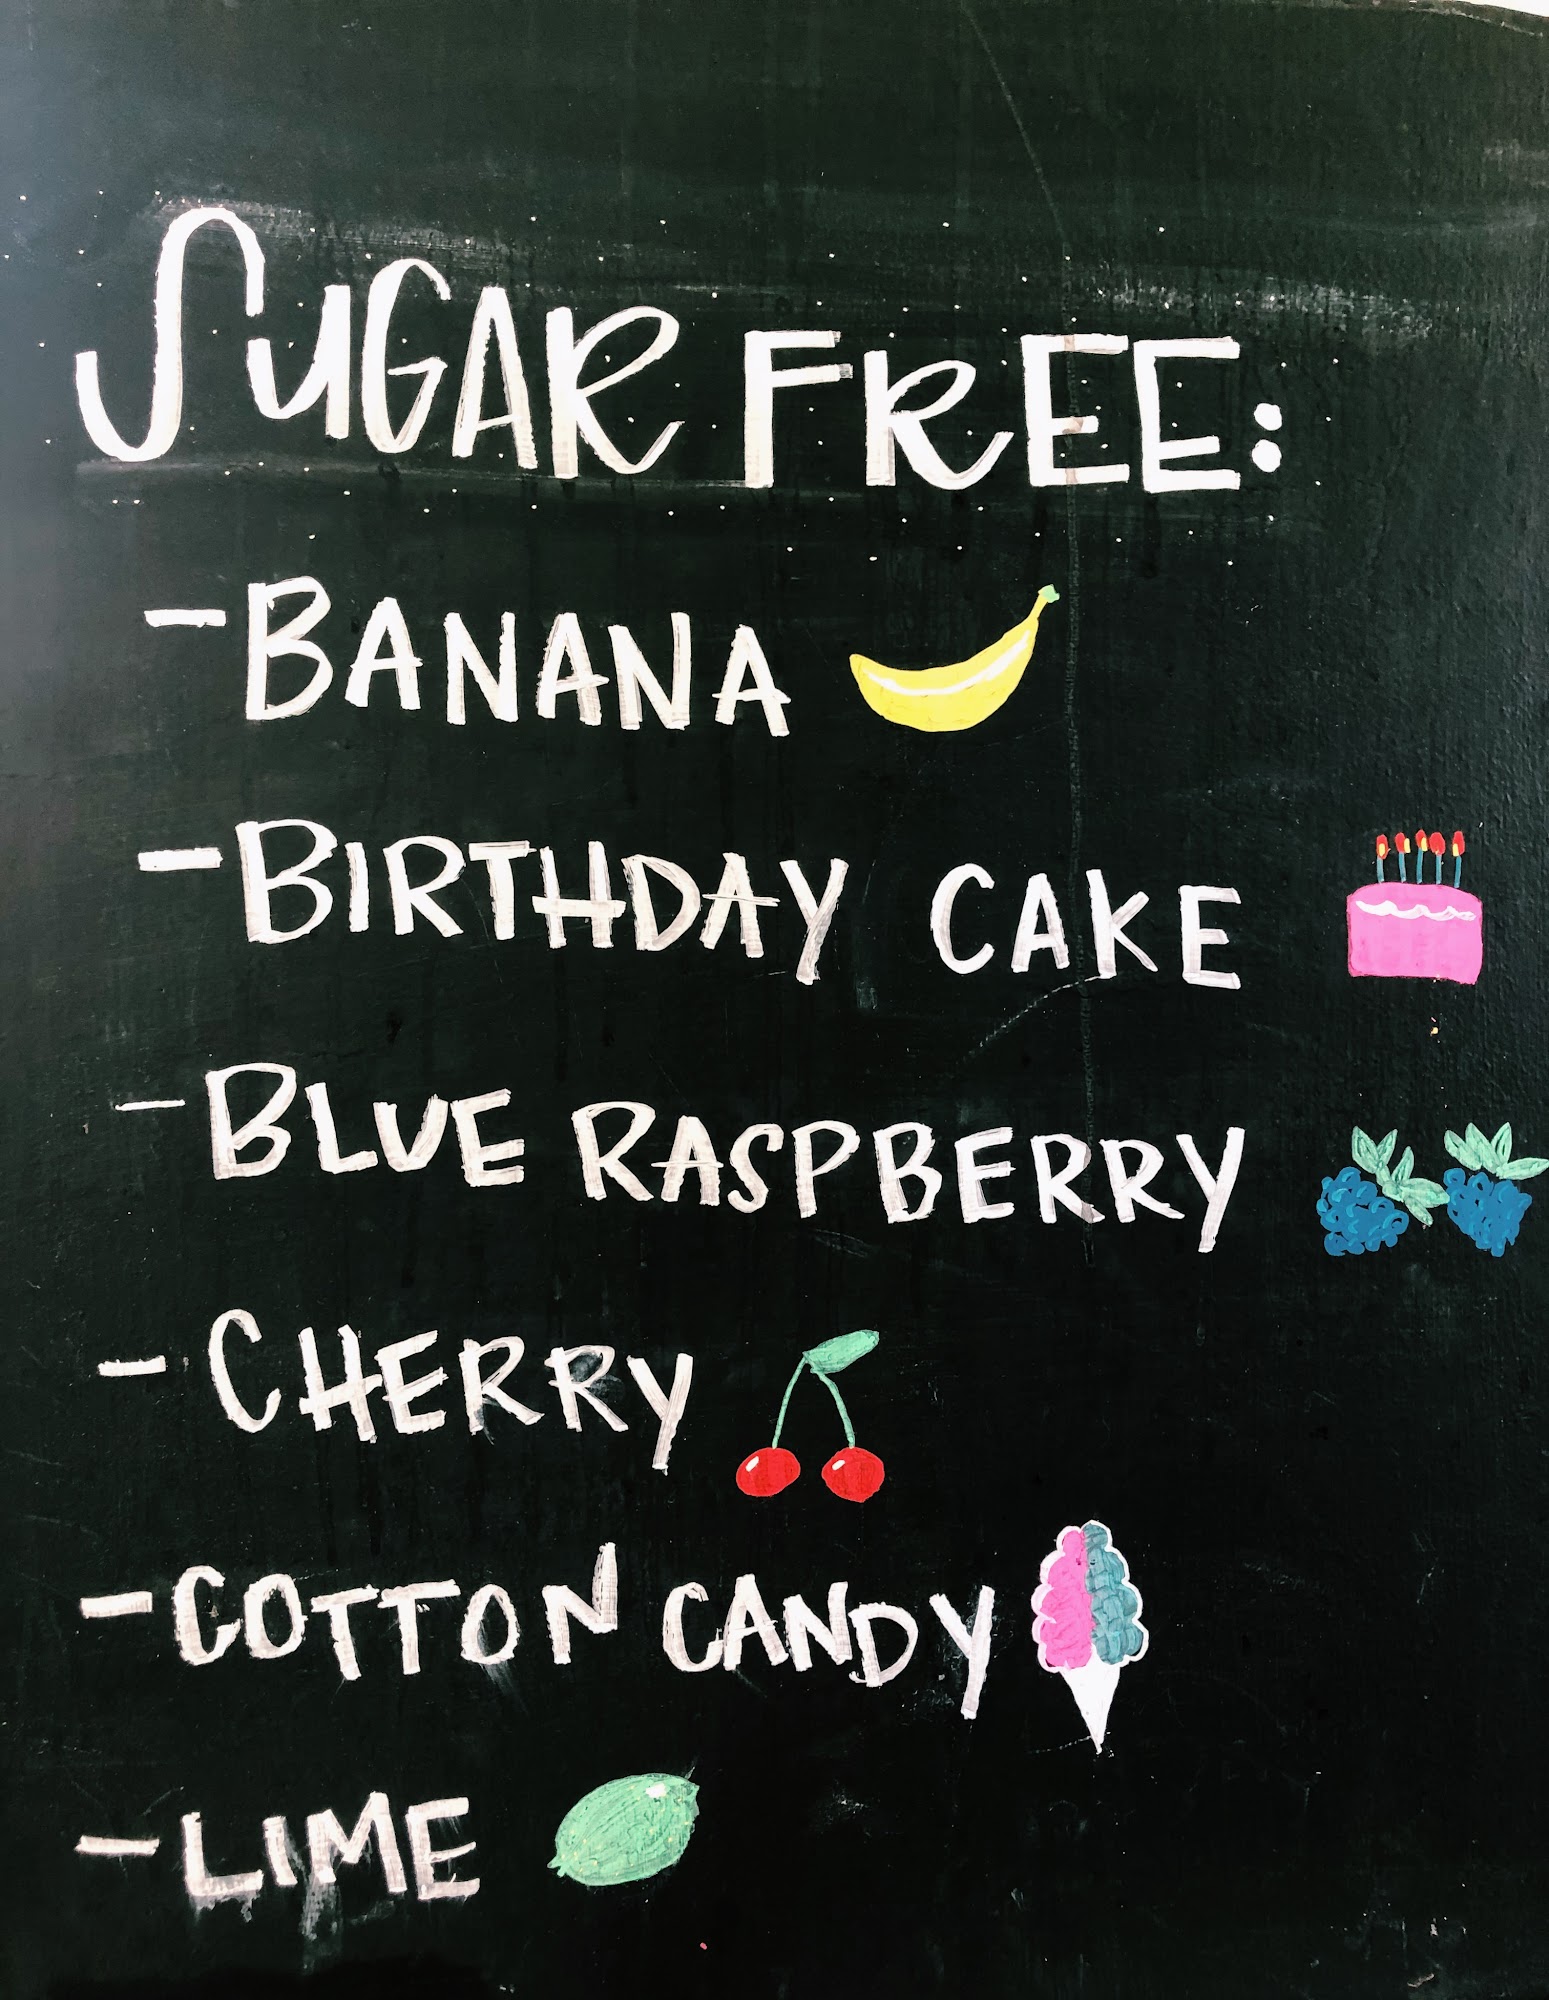 SUGAR FREE:
- BANANA
- BIRTHDAY CAKE
- BLUE RASPBERRY
- CHERRY
- COTTON CANDY
- LIME